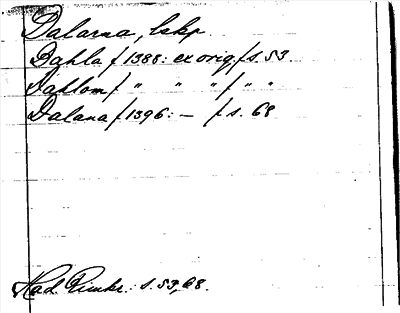 Dalarna, lskp
Dahla / 1388: ex orig / s. 53.
Dahlom / " " " / " "
Dalana / 1396: — / s. 68
s. 53, 68.